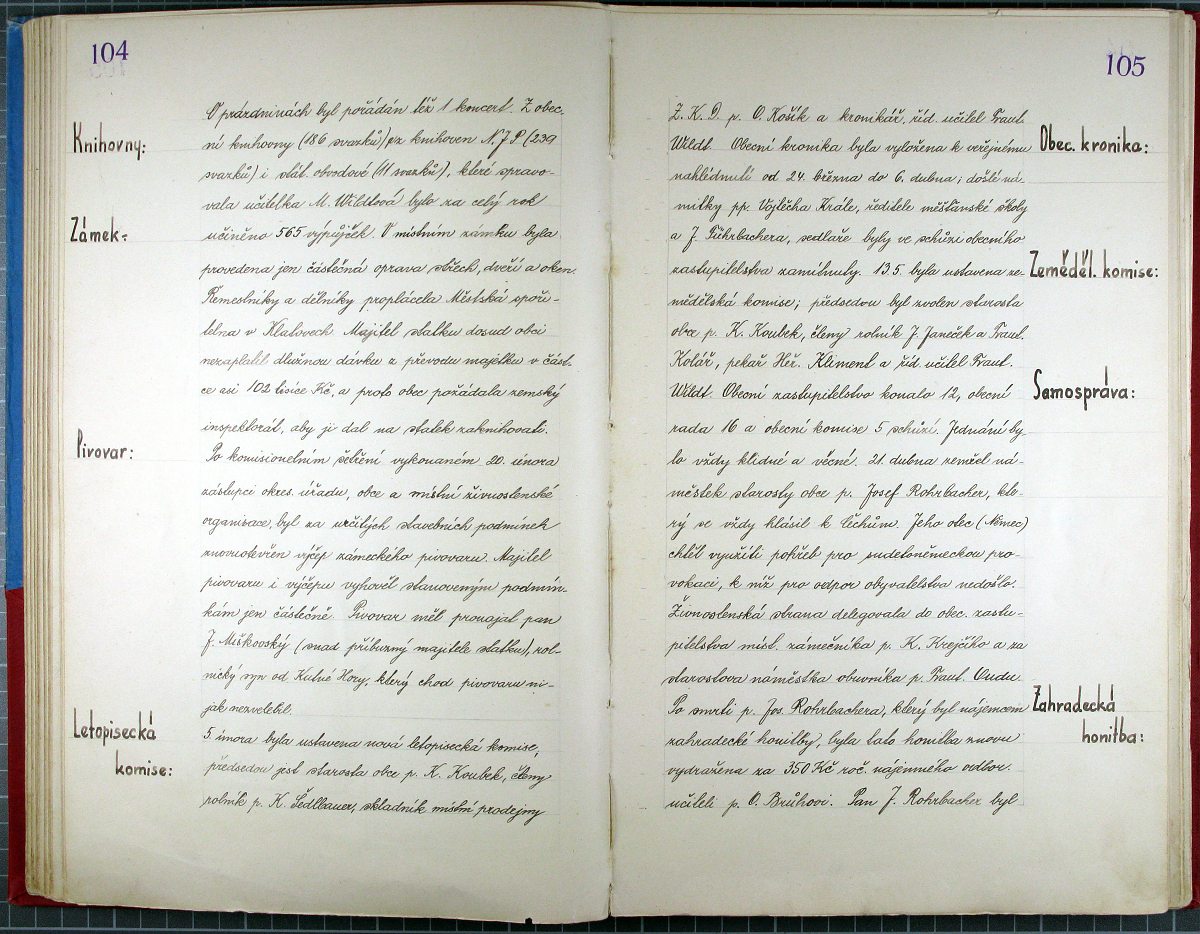 104
O prázdninách byl pořádán též 1 koncert. Z obec-
Knihovny:
ní knihovny (186 svazků), z knihoven N. J. P. (239
svazků) i stát. obvodové (11 svazků), které spravo-
vala učitelka M. Wildtová bylo za celý rok
Zámek:
učiněno 565 výpůjček. V místním zámku byla
provedena jen částečná oprava střech, dveří a oken.
Řemeslníky a dělníky proplácela Městská spoři-
telna v Klatovech. Majitel statku dosud obci
nezaplatil dlužnou dávku z převodu majetku v část-
ce asi 102 tisíce Kč, a proto obec požádala zemský
inspektorát, aby ji dal na statek zaknihovati.
Pivovar:
Po komisionelním šetření vykonaném 20. února
zástupci okres. úřadu, obce a místní živnostenské
organisace, byl za určitých stavebních podmínek
znovuotevřen výčep zámeckého pivovaru. Majitel
pivovaru i výčepu vyhověl stanoveným podmín-
kám jen částečně. Pivovar měl pronajat pan
J. Miškovský (snad příbuzný majitele statku), rol-
nický syn od Kutné Hory, který chod pivovaru ni-
jak nezvelebil.
Letopisecká
komise:
5 února byla ustavena nová letopisecká komise,
předsedou jest starosta obce p. K. Koubek, členy
rolník p. K. Šedlbauer, skladník místní prodejny
105
Z. K. D. p. O. Košík a kronikář, říd. učitel Frant.
Obec. kronika:
Wildt. Obecní kronika byla vyložena k veřejnému
nahlédnutí od 24. března do 6. dubna; došlé ná-
mitky pp. Vojtěcha Krále, ředitele měšťanské školy
a J. Führbachera, sedláře byly ve schůzi obecního
Zeměděl. komise:
zastupitelstva zamítnuty. 13.5. byla ustavena ze-
mědělská komise; předsedou byl zvolen starosta
obce p. K. Koubek, členy rolník J. Janeček a Frant.
Kolář, pekař Heř. Kliment a říd. učitel Frant.
Samospráva:
Wildt. Obecní zastupitelstvo konalo 12, obecní
rada 16 a obecní komise 5 schůzí. Jednání by-
lo vždy klidné a věcné. 21. dubna zemřel ná-
městek starosty obce p. Josef Rohrbacher, kte-
rý se vždy hlásil k Čechům. Jeho otec (Němec)
chtěl využíti pohřeb pro sudetoněmeckou pro-
vokaci, k níž pro odpor obyvatelstva nedošlo.
Živnostenská strana delegovala do obec. zastu-
pitelstva míst. zámečníka p. K. Krejčího a za
starostova náměstka obuvníka p. Frant. Oudu.
Zahradecká
honitba:
Po smrti p. Jos. Rohrbachera, který byl nájemcem
zahradecké honitby, byla tato honitba znovu
vydražena za 350 Kč roč. nájemného odbor.
učiteli p. O. Brůhovi. Pan J. Rohrbacher byl